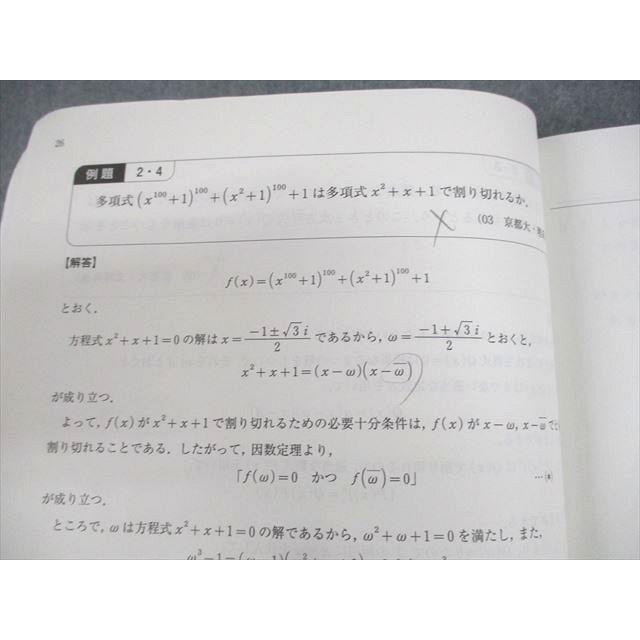 26
例題 2・4
多項式(x¹⁰⁰+1)¹⁰⁰+(x²+1)¹⁰⁰+1は多項式x²+x+1で割り切れるか.
(03 京都大・
【解答】
f(x)=(x¹⁰⁰+1)¹⁰⁰+(x²+1)¹⁰⁰+1
とおく.
方程式x²+x+1=0の解はx=(-1±√3 i)/2であるから, ω=(-1+√3 i)/2とおくと,
x²+x+1=(x-ω)(x-ω̅)
が成り立つ.
よって, f(x)がx²+x+1で割り切れるための必要十分条件は, f(x)がx-ω, x-ω̅で
割り切れることである. したがって, 因数定理より,
「f(ω)=0 かつ f(ω̅)=0」 …
が成り立つ.
ところで, ωは方程式x²+x+1=0の解であるから, ω²+ω+1=0を満たし, また,